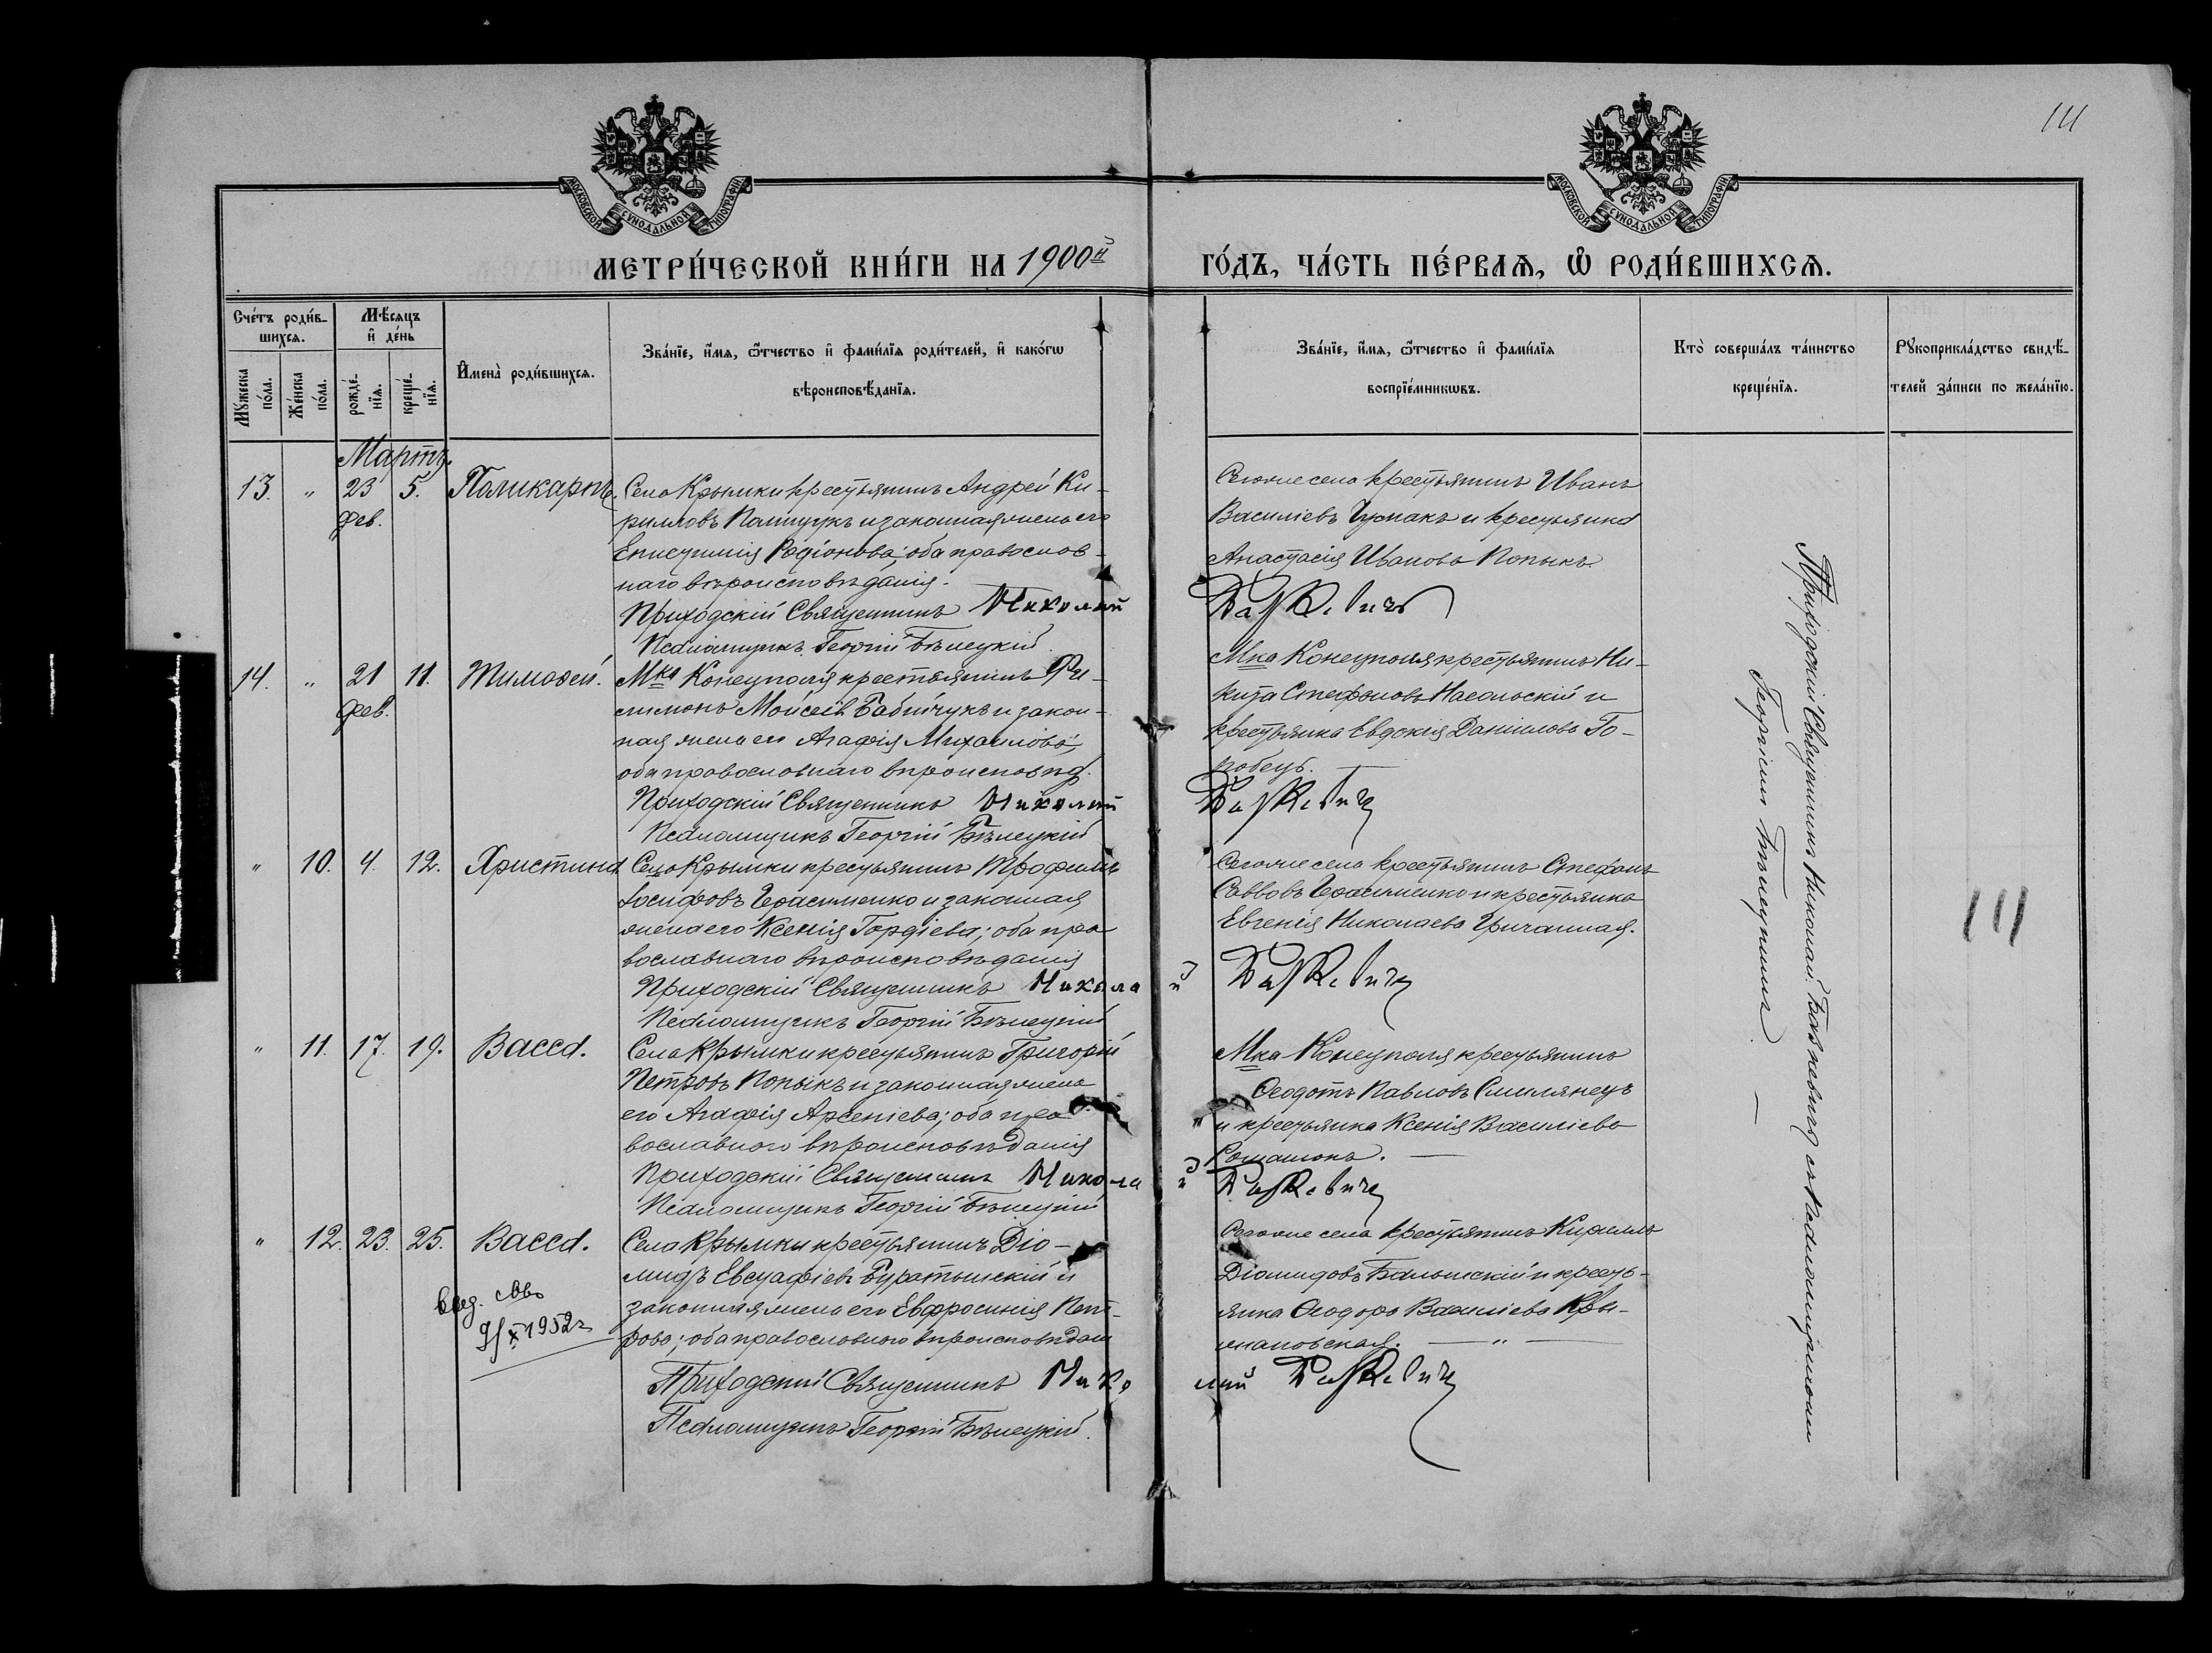 111
МОСКОВСКОЙ СѴНОДАЛЬНОЙ ТИПОГРАФІИ
МОСКОВСКОЙ СѴНОДАЛЬНОЙ ТИПОГРАФІИ
МЕТРИ́ЧЕСКОЙ КНИ́ГИ НА 1900й ГО́ДЪ, ЧА́СТЬ ПЕ́РВАѦ, Ѽ РОДИ́ВШИХСѦ.
Сче́тъ роди́в-
шихсѧ.
Мѣ́сѧцъ
и҆ де́нь
Мꙋ́жеска
по́ла.
Же́нска
по́ла.
рожде́-
нїѧ.
креще́-
нїѧ.
И҆мена̀ роди́вшихсѧ.
Зва́нїе, и҆́мѧ, ѻ҆́тчество и҆ фами́лїѧ роди́телей, и҆ како́гѡ
вѣроисповѣ́данїѧ.
Зва́нїе, и҆́мѧ, ѻ҆́тчество и҆ фами́лїѧ
воспрїе́мникѡвъ.
Кто̀ соверша́лъ та́инство
креще́нїѧ.
Рꙋкоприкла́дство свидѣ́-
телей за́писи по жела́нїю.
Мартъ.
13. " 23 5. Поликарпъ.
фев.
Села Крымки крестьянинъ Андрей Ки-
рилловъ и законная жена его
Родіонова; оба православ-
наго вѣроисповѣданія.
Приходскій Священникъ Николай
Псаломщикъ Георгій Бѣлецкій
Сегоже села крестьянинъ Иванъ
Василіевъ Чумакъ и крестьянка
Анастасія Иванова Попыкъ.
Баѣкевичъ
14. " 21 11. Тимоѳей.
фев.
Мка Конецполя крестьянинъ Фи-
лимонъ Моѵсеевъ Бабійчукъ и закон-
ная жена его Агафія Михаилова;
оба православнаго вѣроисповѣд.
Приходскій Священникъ Николай
Псаломщикъ Георгій Бѣлецкій
Мка Конецполя крестьянинъ Ни-
кита Стефановъ и
крестьянка Евдокія Даніилова Го-
робецъ.
" 10. 4. 12. Христина
Села Крымки крестьянинъ Трофимъ
Іосифовъ Герасименко и законная
жена его Ксенія Гордіева; оба пра
вославнаго вѣроисповѣданія
Приходскій Священникъ Николай
Псаломщикъ Георгій Бѣлецкій
Сегоже села крестьянинъ Стефанъ
Савовъ Герасименко и крестьянка
Евгенія Николаева
" 11. 17. 19. Васса.
Села Крымки крестьянинъ Григорій
Петровъ Попыкъ и законная жена
его Агафія Арсеніева; оба пра
вославного вѣроисповѣданія
Приходскій Священникъ Николай
Псаломщикъ Георгій Бѣлецкій
Мка Конецполя крестьянинъ
Ѳеодотъ Павловъ Смилянецъ
и крестьянка Ксенія Василіева
" 12. 23. 25. Васса.
Села Крымки крестьянинъ Діо-
мидъ Евстафіевъ и
законная жена его Евфросинія Пет-
рова; оба православного вѣроисповѣдан
Приходскій Священникъ Николай
Псаломщикъ Георгій Бѣлецкій.
Сегоже села крестьянинъ Кириллъ
Діомидовъ и кресть-
янка Ѳеодора Василіева Кры-
жановская.
1952г
Приходскій Священникъ Николай съ Псаломщикомъ
Георгіемъ Бѣлецкимъ
111